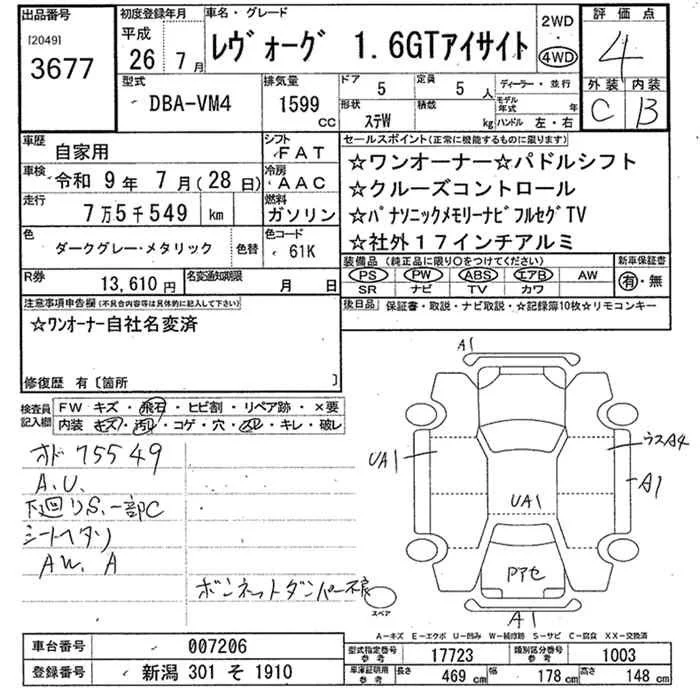 出品番号
[2049]
3677
初度登録年月
平成
26年 7月
車名・グレード
レヴォーグ 1.6GTアイサイト
2WD
・
4WD
評価点
4
外装 内装
C B
型式
DBA-VM4
排気量
1599
CC
ドア
5
形状
ステW
定員
5人
積載
kg
ディーラー・並行
モデル年式 年
ハンドル 左・右
車歴
自家用
シフト
FAT
車検
令和 9年 7月(28日)
冷房
AAC
走行
7万5千549 km
燃料
ガソリン
色
ダークグレー・メタリック
色替
色コード
61K
R券
13,610円
名変通知期限
月 日
セールスポイント(正常に機能するものに限ります)
☆ワンオーナー☆パドルシフト
☆クルーズコントロール
☆パナソニックメモリーナビフルセグTV
☆社外17インチアルミ
装備品(純正品に限り○をつけてください)
PS PW ABS エアB AW
SR ナビ TV カワ
新車保証書
有・無
後日品 保証書・取説・ナビ取説・☆記録簿10枚☆リモコンキー
注意事項申告欄(不具合内容等は具体的に記入して下さい)
☆ワンオーナー自社名変済
修復歴 有〔箇所 〕
検査員記入欄
FW キズ・飛石・ヒビ割・リペア跡・×要
内装 キズ・汚れ・コゲ・穴・スレ・キレ・破レ
オド 75549
A.U.
下廻りS.一部C
シートヘタリ
AW. A
ボンネットダンパー不良
A1
UA1
UA1
ウスA4
A1
Pアセ
A1
スペア
A-キズ E-エクボ U-凹み W-補修跡 S-サビ C-腐食 XX-交換済
車台番号
007206
登録番号
新潟 301 そ 1910
型式指定番号
参考
17723
類別区分番号
参考
1003
車庫証明用
参考
長さ 469 cm 幅 178 cm 高さ 148 cm